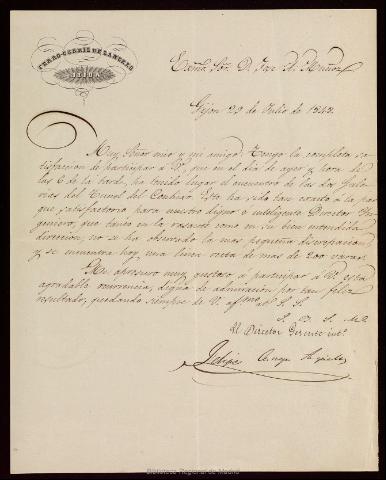 FERRO-CARRIL DE LANGREO
GIJON
Excmo. Sor. D. Jose A. Muñoz
Gijon 29 de Julio de 1848.
Muy Señor mio y mi amigo: Tengo la completa sa-
tisfaccion de participar á V. que en el dia de ayer y hora de
las 6 de la tarde, ha tenido lugar el encuentro de las dos Gale-
rias del Tunel del Conixo. Esto ha sido tan exacto á la par
que satisfactorio para nuestro digno é inteligente Director Yn-
geniero, que tanto en la rasante como en su bien entendida
direccion, no se ha observado la mas pequeña discrepancia
y se encuentra hoy una linea recta de mas de 200 varas.
Me apresuro muy gustoso á participar á V. esta
agradable ocurrencia, digna de admiracion por tan feliz
resultado, quedando siempre de V. afmo. S. S.
Q. B. S. M.
El Director Gerente int.
Biblioteca Regional de Madrid